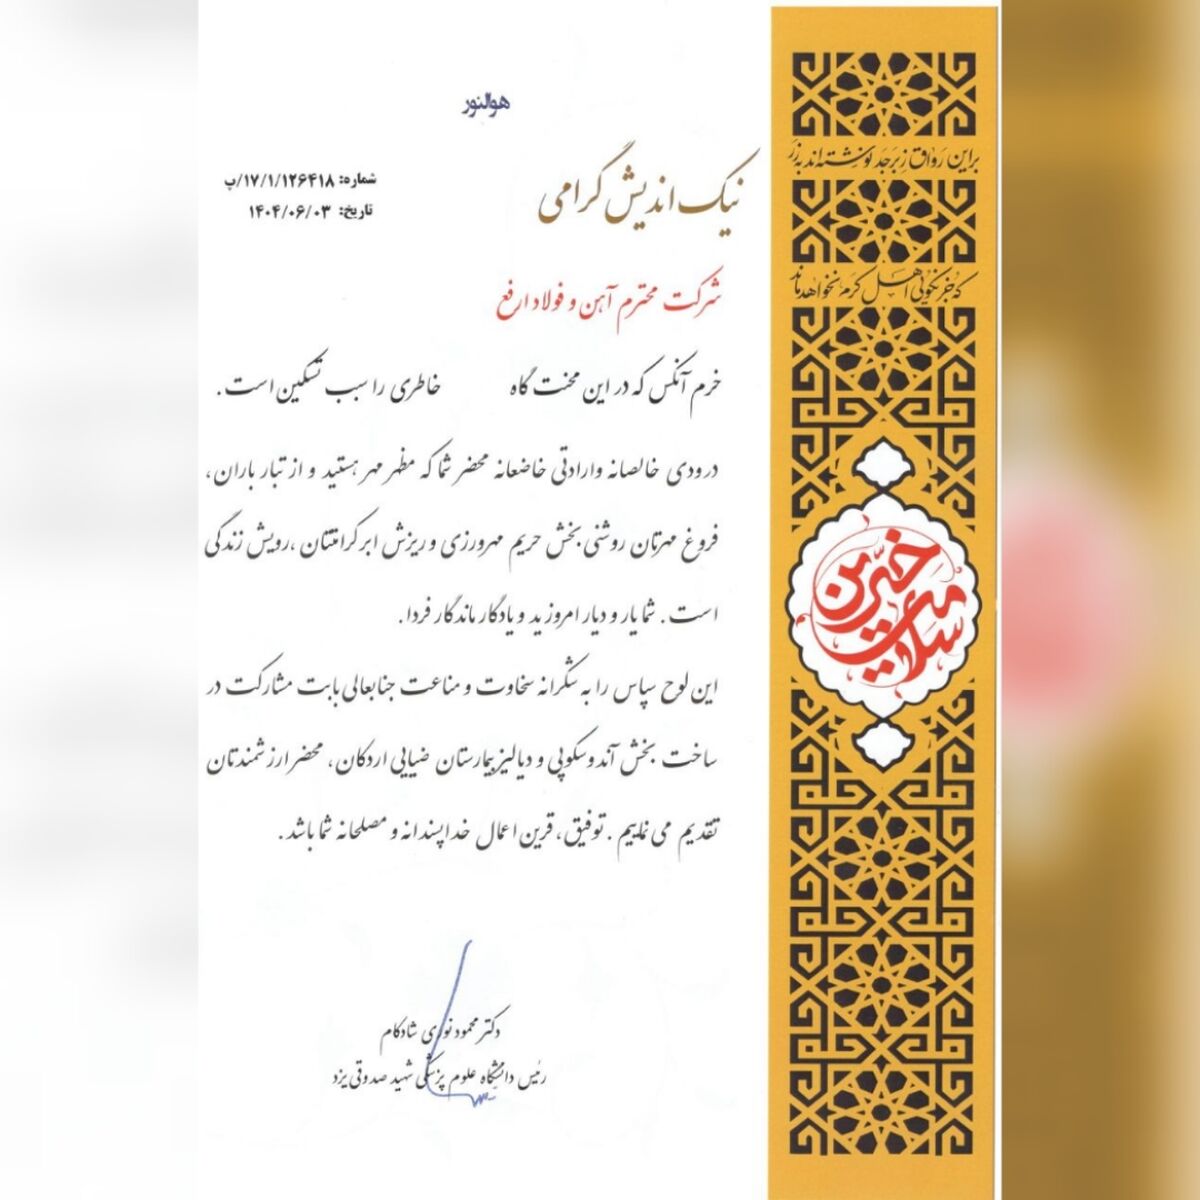 هوالنور
شماره: ۱۷/۱/۱۲۶۴۱۸/پ
تاریخ: ۱۴۰۴/۰۶/۰۳
نیک اندیش گرامی
شرکت محترم آهن و فولاد ارفع
خرم آنکس که در این محنت گاه خاطری را سبب تسکین است .
درودی خالصانه وارادتی خاضعانه محضر شما که مظهر مهر هستید و از تبار باران،
فروغ مهرتان روشنی بخش حریم مهرورزی و ریزش ابر کرامتتان ،رویش زندگی
است . شما یار و دیار امروزید و یادگار ماندگار فردا.
این لوح سپاس را به شکرانه سخاوت و مناعت جنابعالی بابت مشارکت در
ساخت بخش آندوسکوپی و دیالیز بیمارستان ضیایی اردکان، محضر ارزشمندتان
تقدیم می نماییم . توفیق، قرین اعمال خداپسندانه و مصلحانه شما باشد .
دکتر محمود نوری شادکام
رئیس دانشگاه علوم پزشکی شهید صدوقی یزد
بر این رواق زبرجد نوشته اند به زر
که جز نکویی اهل کرم نخواهد ماند
خیرین
سلامت